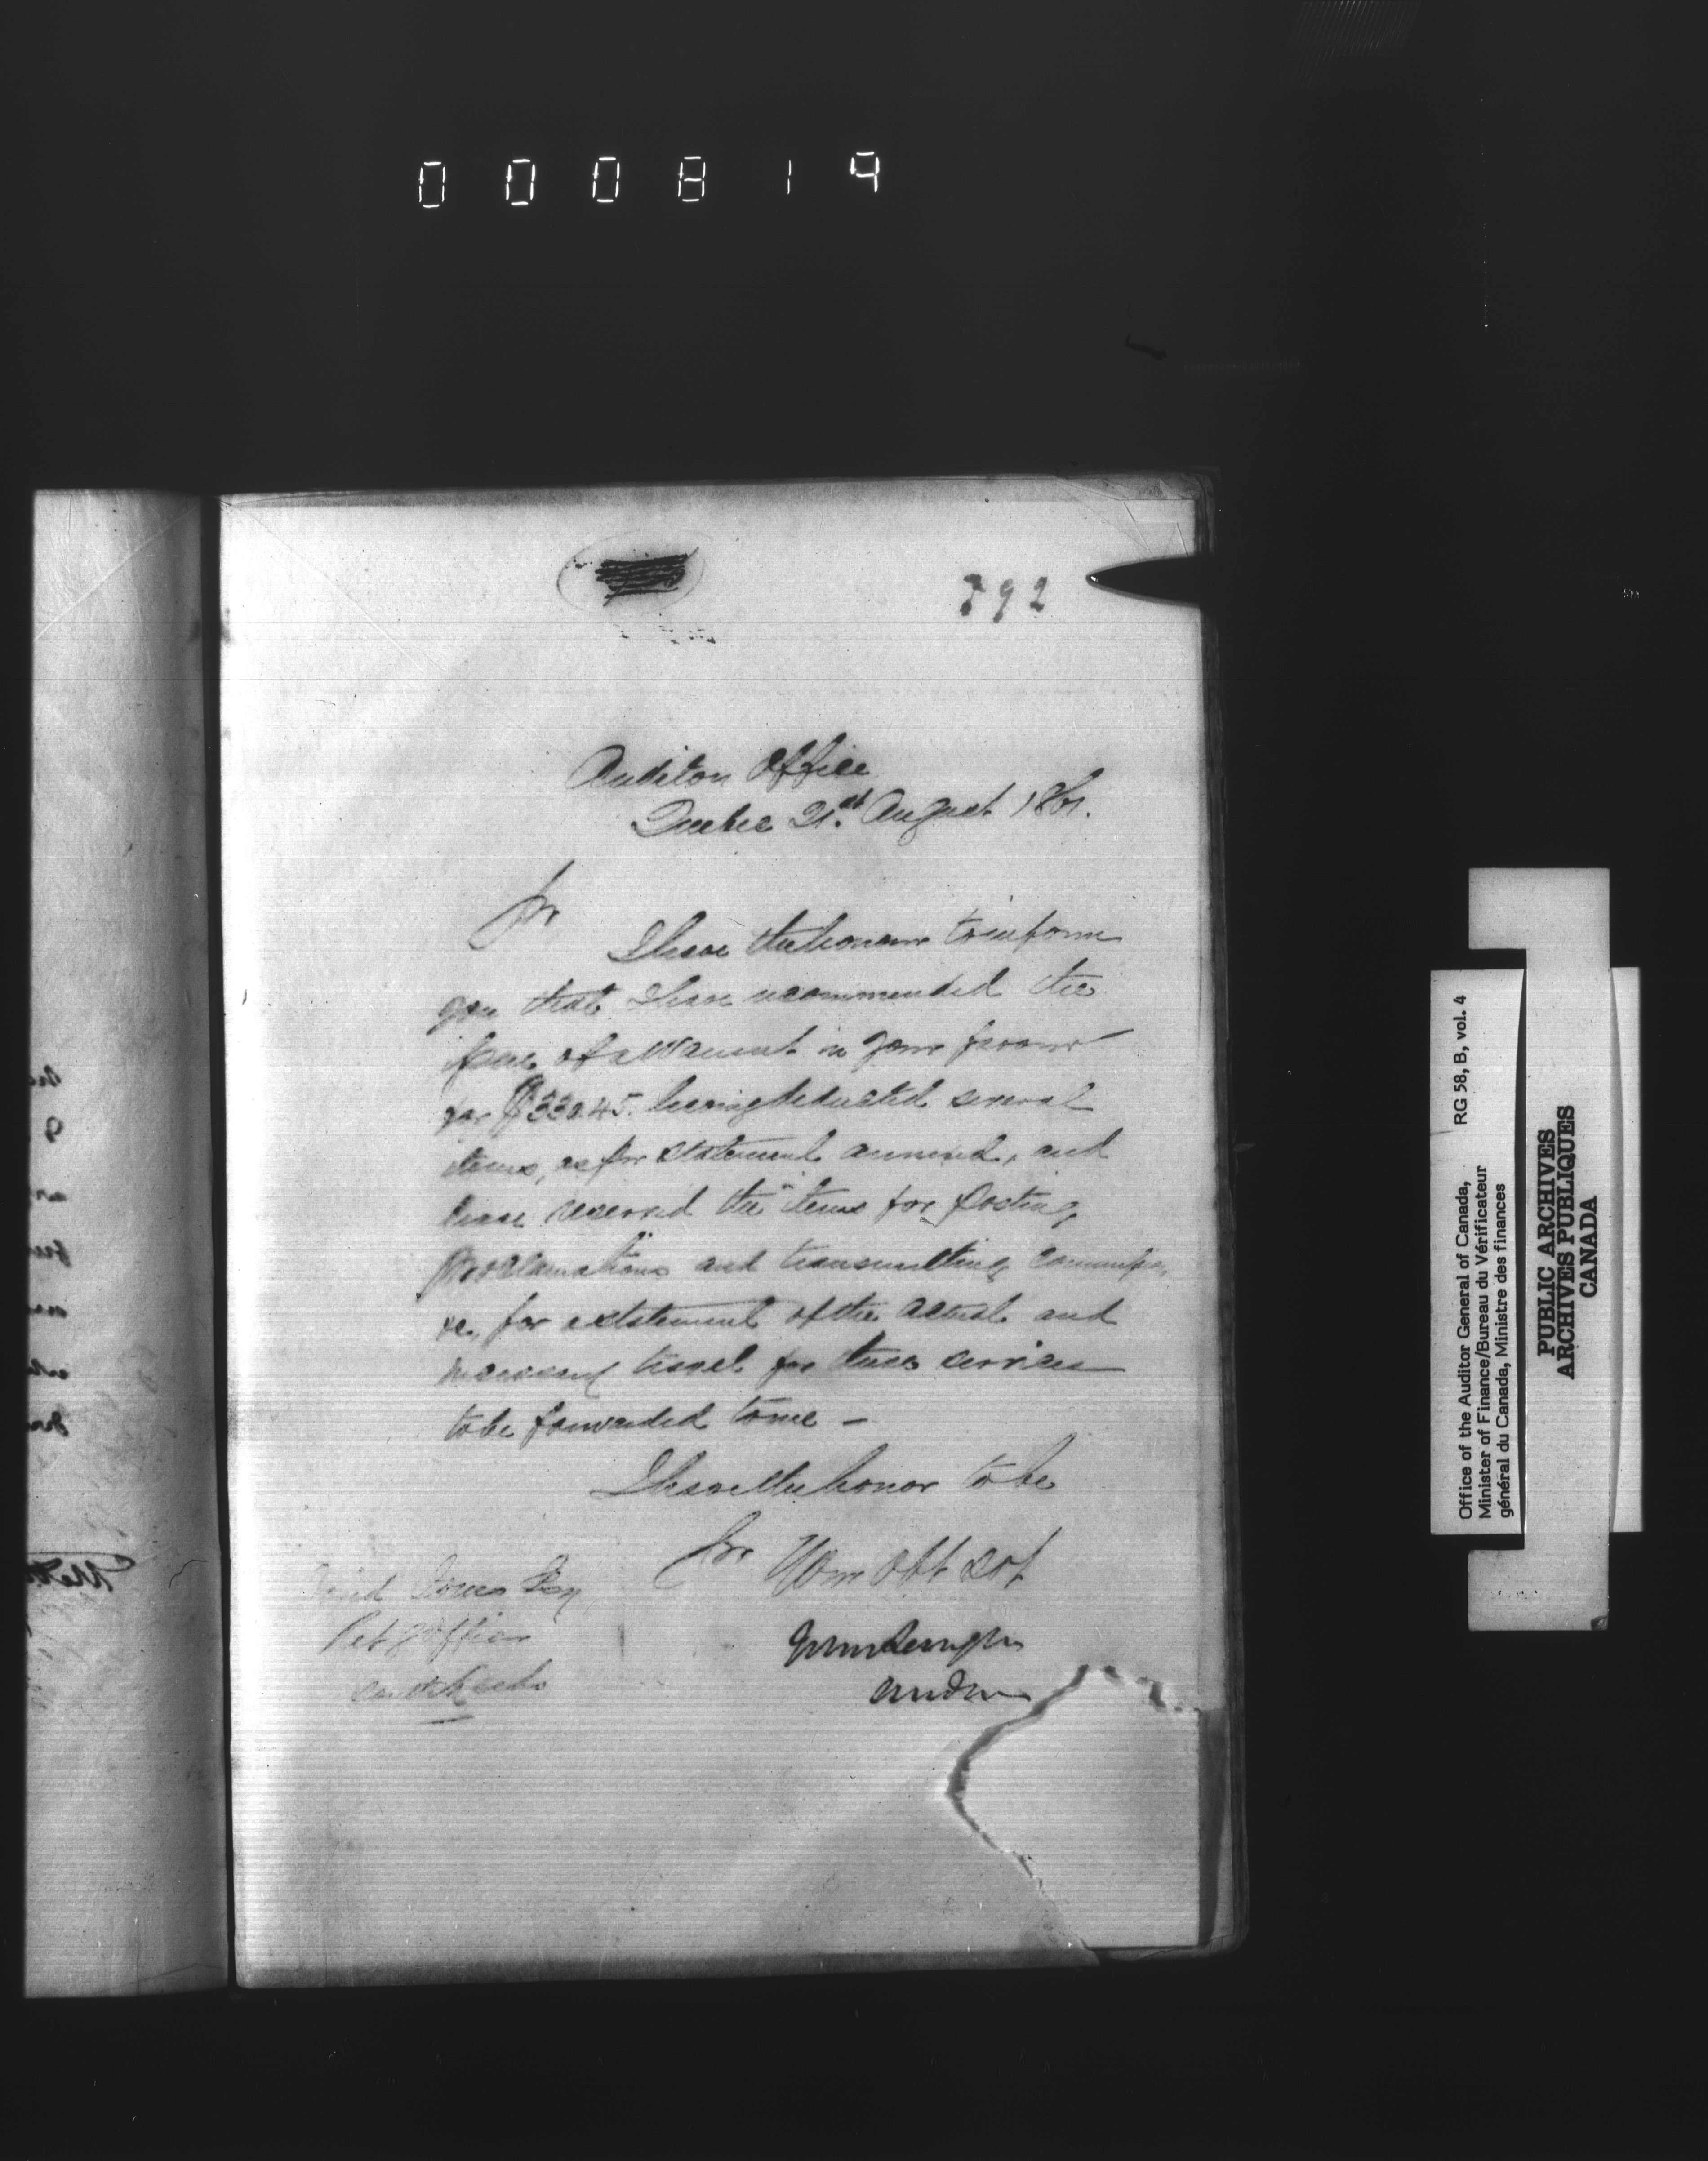 000819
792
Auditor Office
Quebec 21st August 1861.
Sir
I have the honour to inform
you that I have recommended the
issue of a Warrant in your favour
for $330.45. having deducted several
items, as per statement annexed, and
have reserved the items for Posting
Proclamations and transmitting Commission
&c, for a statement of the actual and
necessary travel for these services
to be forwarded to me –
I have the honor to be
Sir Your Obt Sert
John Langton
Auditor
Jones Esq
RG 58, B, vol. 4
Office of the Auditor General of Canada,
Minister of Finance/Bureau du Vérificateur
général du Canada, Ministre des finances
PUBLIC ARCHIVES
ARCHIVES PUBLIQUES
CANADA